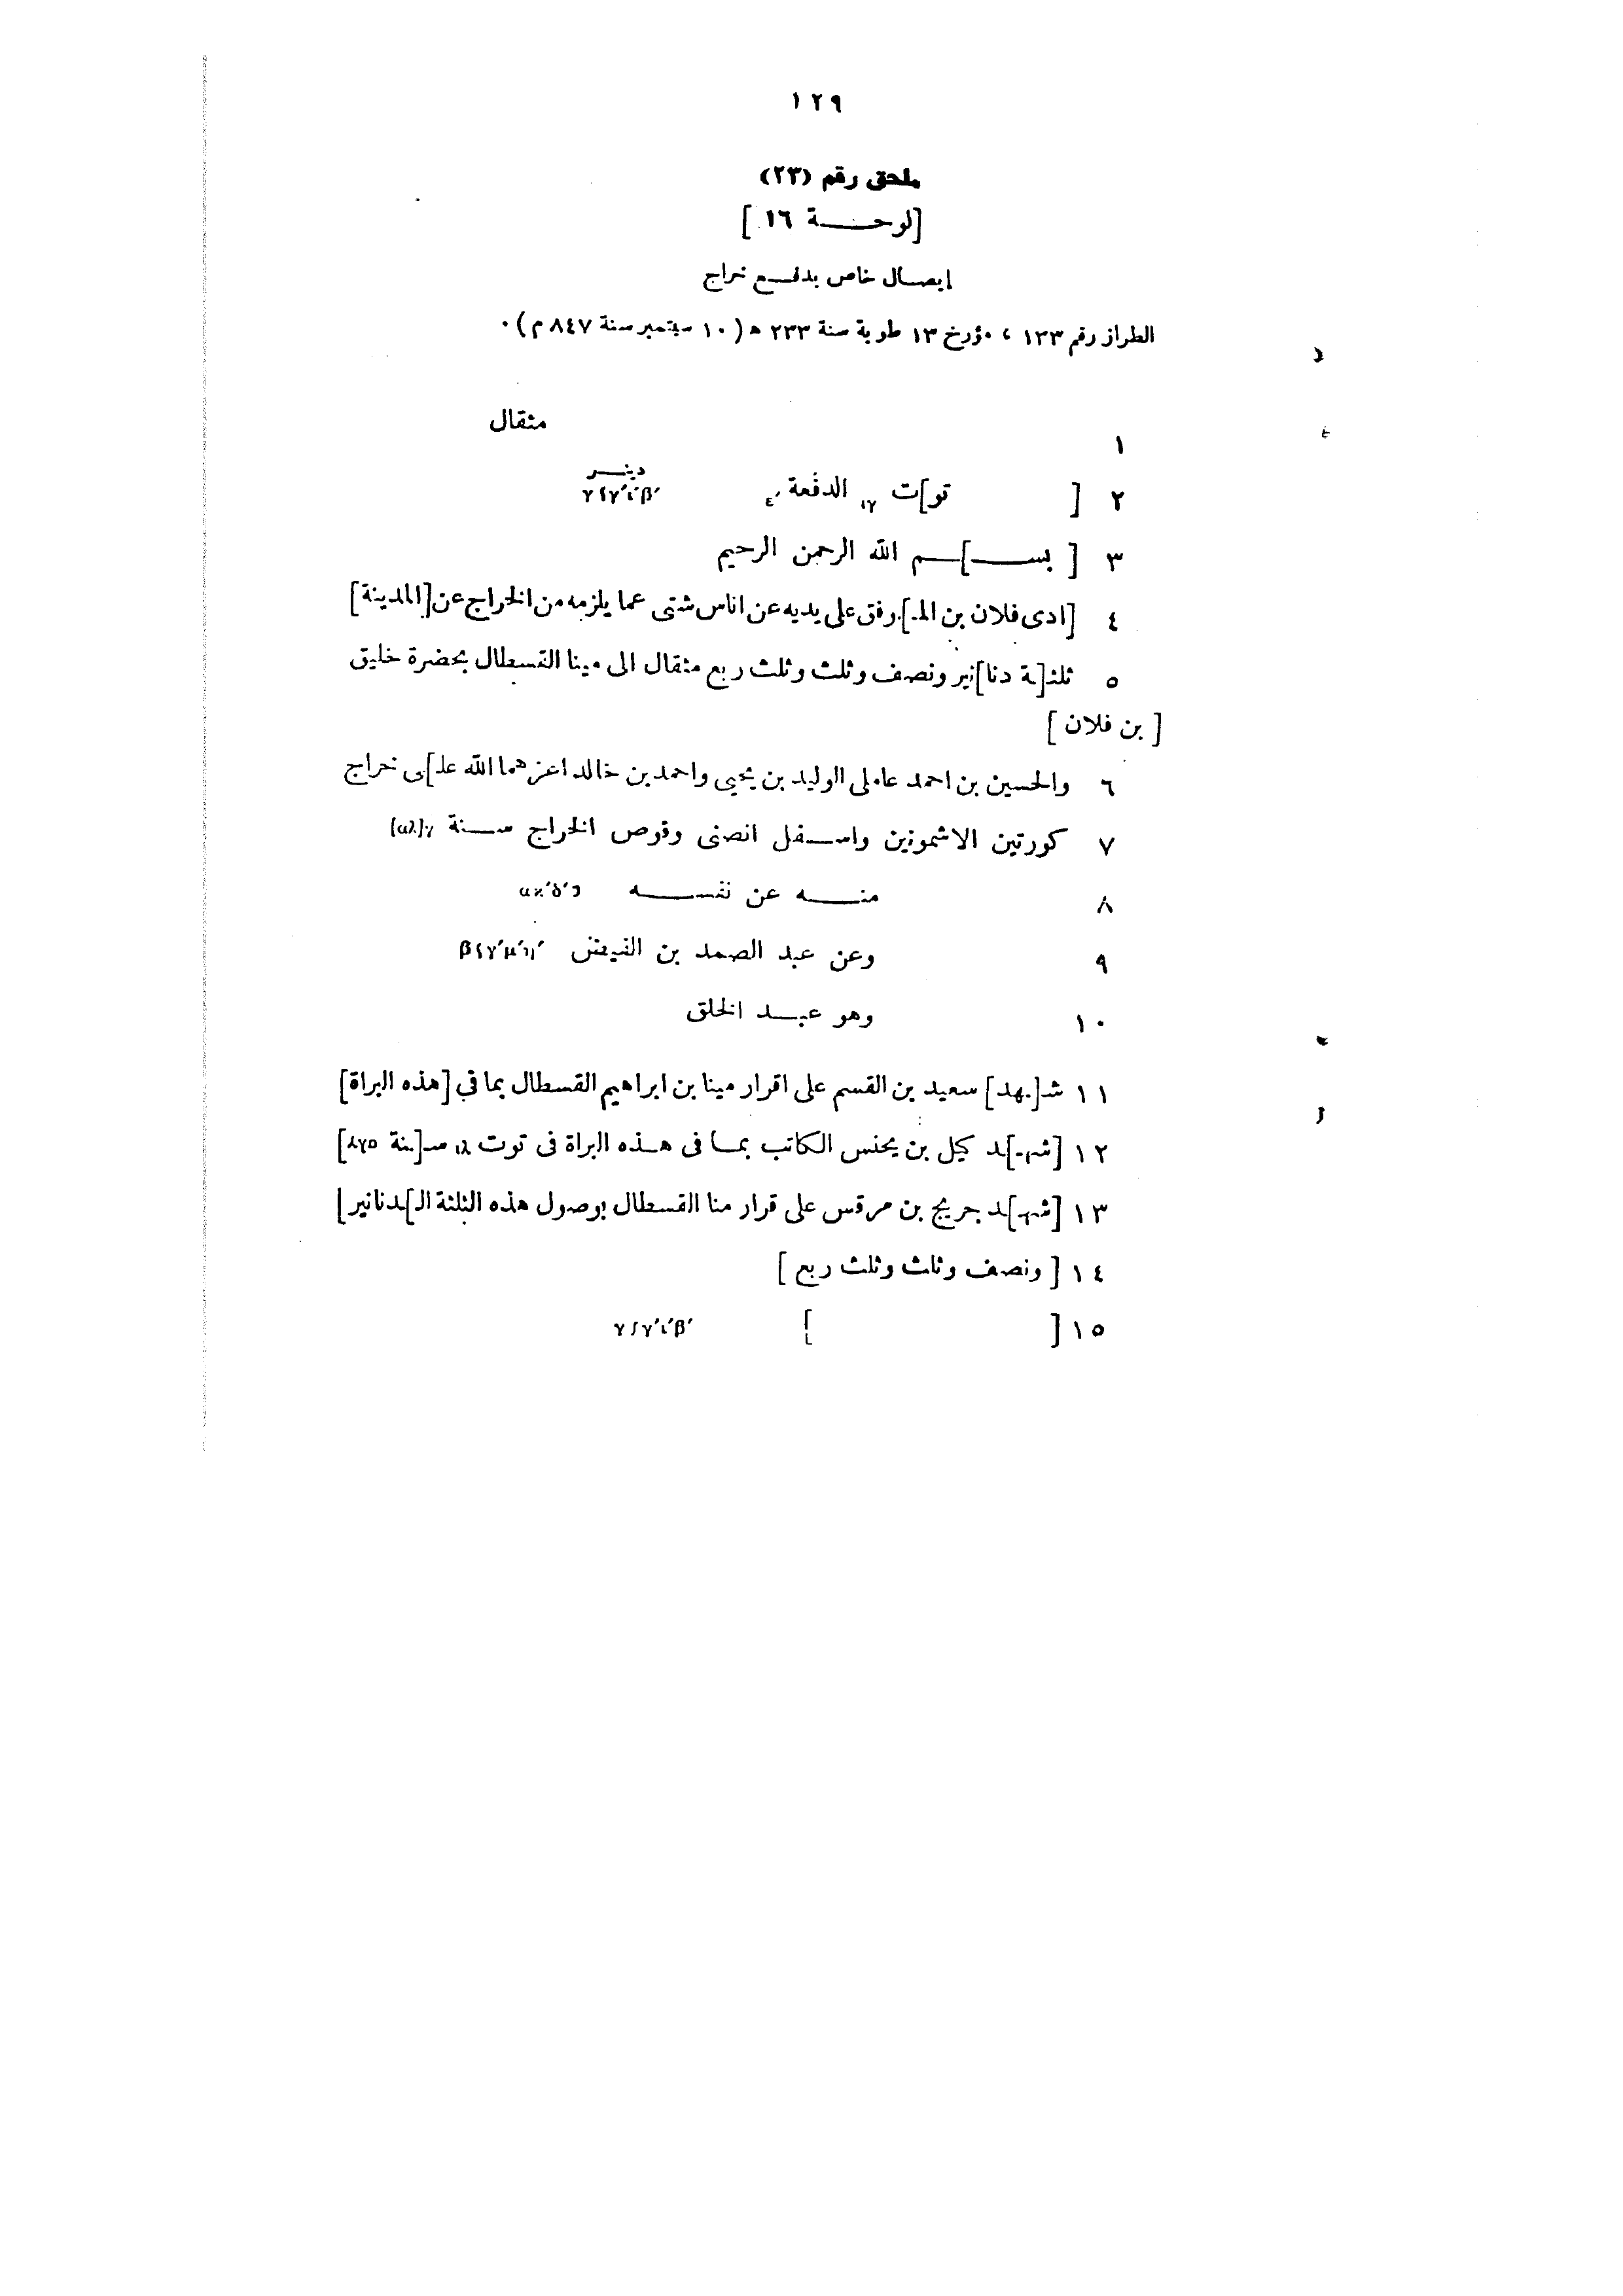 ١٢٩
ملحق رقم (٢٣)
[لوحة ١٦]
إيصال خاص بدفع خراج
الطراز رقم ١٣٣ ، مؤرخ ١٣ طوبة سنة ٢٣٣ هـ (١٠ سبتمبر سنة ٨٤٧ م) ٠
مثقال
١
دينر
٢ [ تو]ت ١٧ الدفعة ٤ γςγ′ι′β′
٣ [ بســ]ـم الله الرحمن الرحيم
٤ [ادى فلان بن المـ]ـرفق على يديه عن اناس شتى عما يلزمه من الخراج عن [المدينة]
٥ ثلثـ[ـة دنا]نير ونصف وثلث وثلث ربع مثقال الى مينا القسطال بحضرة خليق
[ بن فلان ]
٦ والحسين بن احمد عاملى الوليد بن يحيى واحمد بن خالد اعزهما الله علـ]ـى خراج
٧ كورتين الاشمونين واسفل انصنى وقوص الخراج ســنة
٨ منــه عن نفســه
٩ وعن عبد الصمد بن الفيض
١٠ وهو عبد الخلق
١١ شـ[ـهد] سعيد بن القسم على اقرار مينا بن ابراهيم القسطال بما في [هذه البراة]
١٢ [شهـ]ـد كيل بن يحنس الكاتب بمــا فى هــذه البراة فى توت ١٨ سـ[ـنة
١٣ [شهـ]ـد جريج بن مرقس على قرار منا القسطال بوصول هذه الثلثة الـ]ـدنانير]
١٤ [ ونصف وثلث وثلث ربع ]
١٥ [ ] γςγ′ι′β′